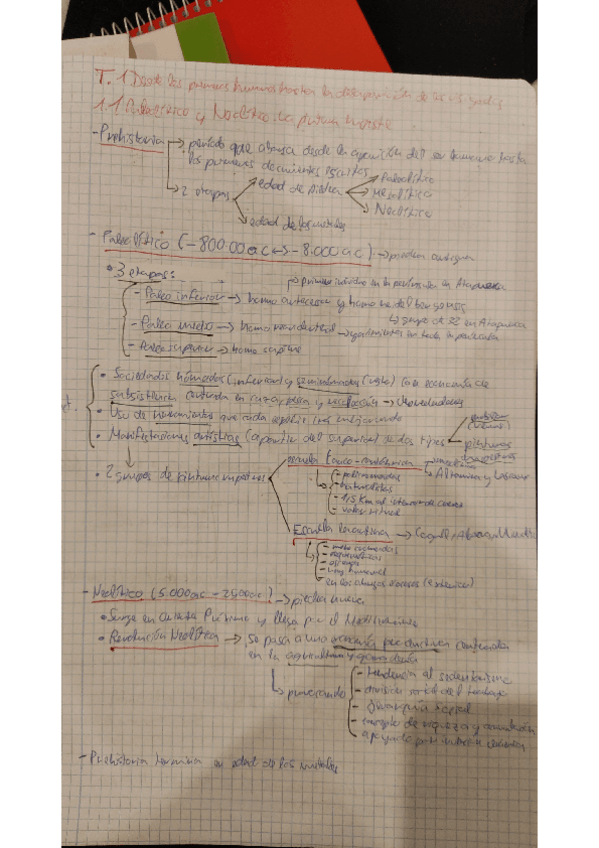 T.1 Desde los primeros humanos hasta la desaparición de los visigodos
1.1 Paleolítico y Neolítico. La pintura rupestre
- Prehistoria → período que abarca desde la aparición del ser humano hasta
los primeros documentos escritos
→ 2 etapas
edad de piedra
Paleolítico
Mesolítico
Neolítico
edad de los metales
- Paleolítico (-800.000 a c - 8.000 a c) → piedra antigua
• 3 etapas:
→ primeros individuos en la península en Atapuerca
- Paleo inferior → homo antecessor y homo heidelbergensis
↳ grupo de 32 en Atapuerca
- Paleo medio → homo neandertal → en toda la península
- Paleo superior → homo sapiens
• Sociedades nómadas (inferior) y seminómadas (resto) con economía de
subsistencia centrada en caza, pesca y recolección → depredadores
• Uso de herramientas que cada irán mejorando
• Manifestaciones artísticas (a partir del superior) de dos tipos
pinturas
rupestres
• 2 grupos de pinturas rupestres
escuela franco-cantábrica
Altamira y Lascaux
- policromadas
- naturalistas
- interior de cuevas
- valor ritual
Escuela levantina → Cogull,
- monocromadas
- esquemáticas
- fig. humana
en los abrigos rocosos (exterior)
- Neolítico (5.000 a c - 2.500 a c) → piedra nueva
• Surge en Oriente Próximo y llega por el Mediterráneo
• Revolución Neolítica → se pasa a una economía productiva centrada
en la agricultura y ganadería
↳ provocando
- tendencia al sedentarismo
- división social del trabajo
- jerarquía social
- concepto de riqueza y acumulación
- Prehistoria termina en edad de los metales